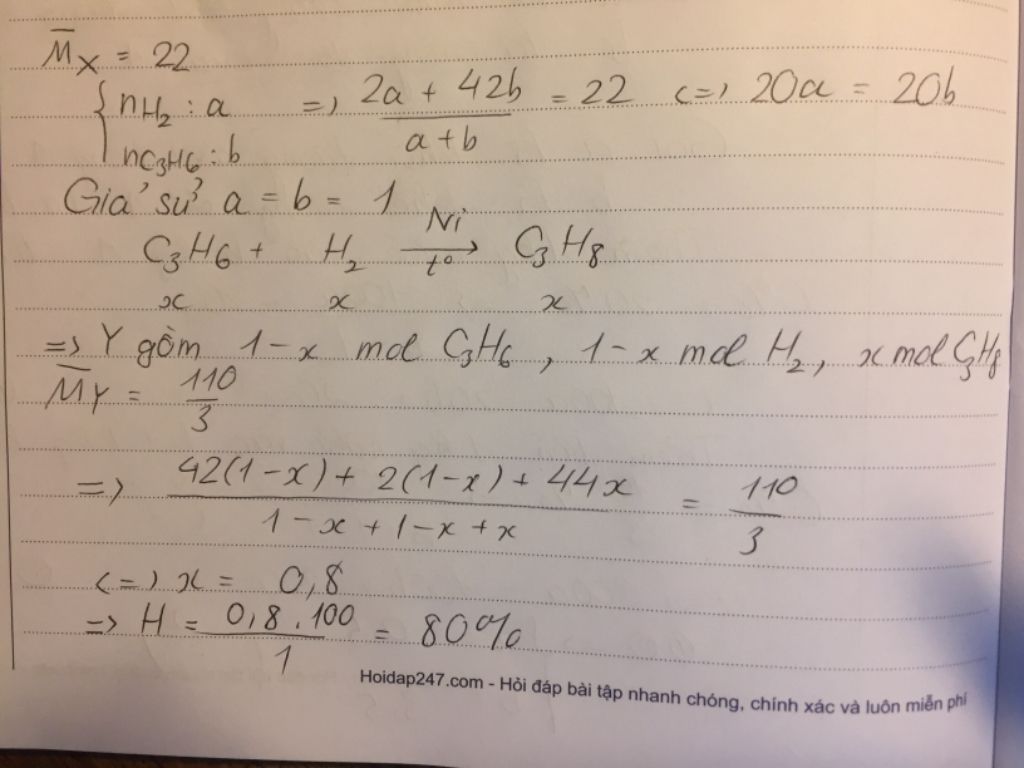 M̄x = 22
{ nH₂ : a => (2a + 42b)/(a + b) = 22 <=> 20a = 20b
nC₃H₆ : b
Giả sử a = b = 1
C₃H₆ + H₂ —Ni/t°→ C₃H₈
x x x
=> Y gồm 1-x mol C₃H₆, 1-x mol H₂, x mol C₃H₈
M̄Y = 110/3
=> (42(1-x) + 2(1-x) + 44x)/(1-x+1-x+x) = 110/3
<=> x = 0,8
=> H = (0,8.100)/1 = 80%
Hoidap247.com - Hỏi đáp bài tập nhanh chóng, chính xác và luôn miễn phí